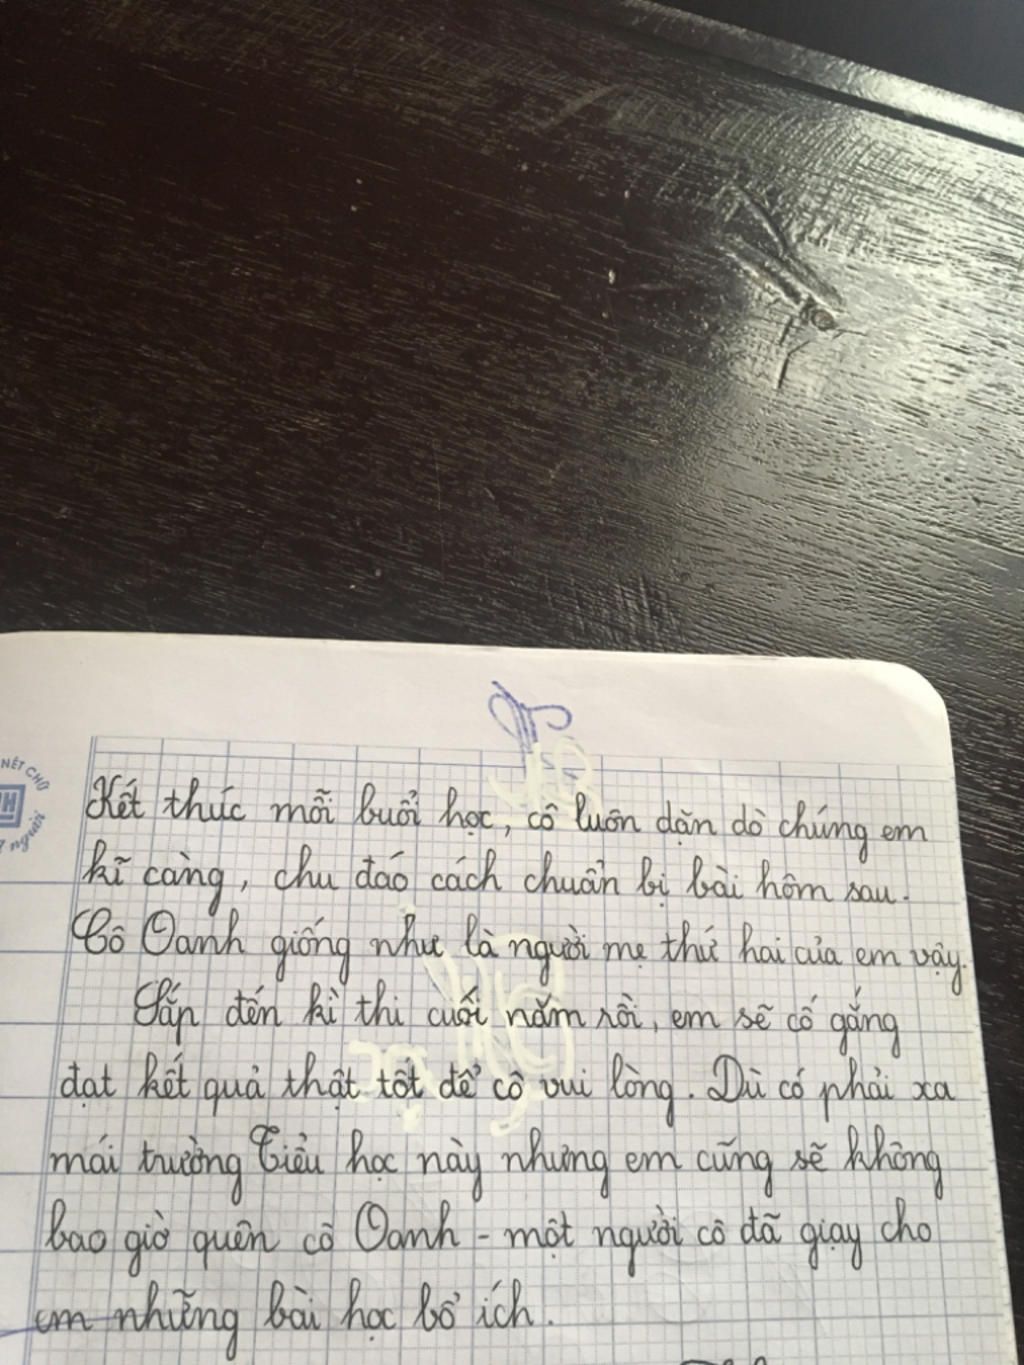 NÉT CHỮ
H
người
Kết thúc mỗi buổi học, cô luôn dặn dò chúng em
kĩ càng, chu đáo cách chuẩn bị bài hôm sau.
Cô Oanh giống như là người mẹ thứ hai của em vậy.
Sắp đến kì thi cuối năm rồi, em sẽ cố gắng
đạt kết quả thật tốt để cô vui lòng. Dù có phải xa
mái trường Tiểu học này nhưng em cũng sẽ không
bao giờ quên cô Oanh - một người cô đã giạy cho
em những bài học bổ ích.